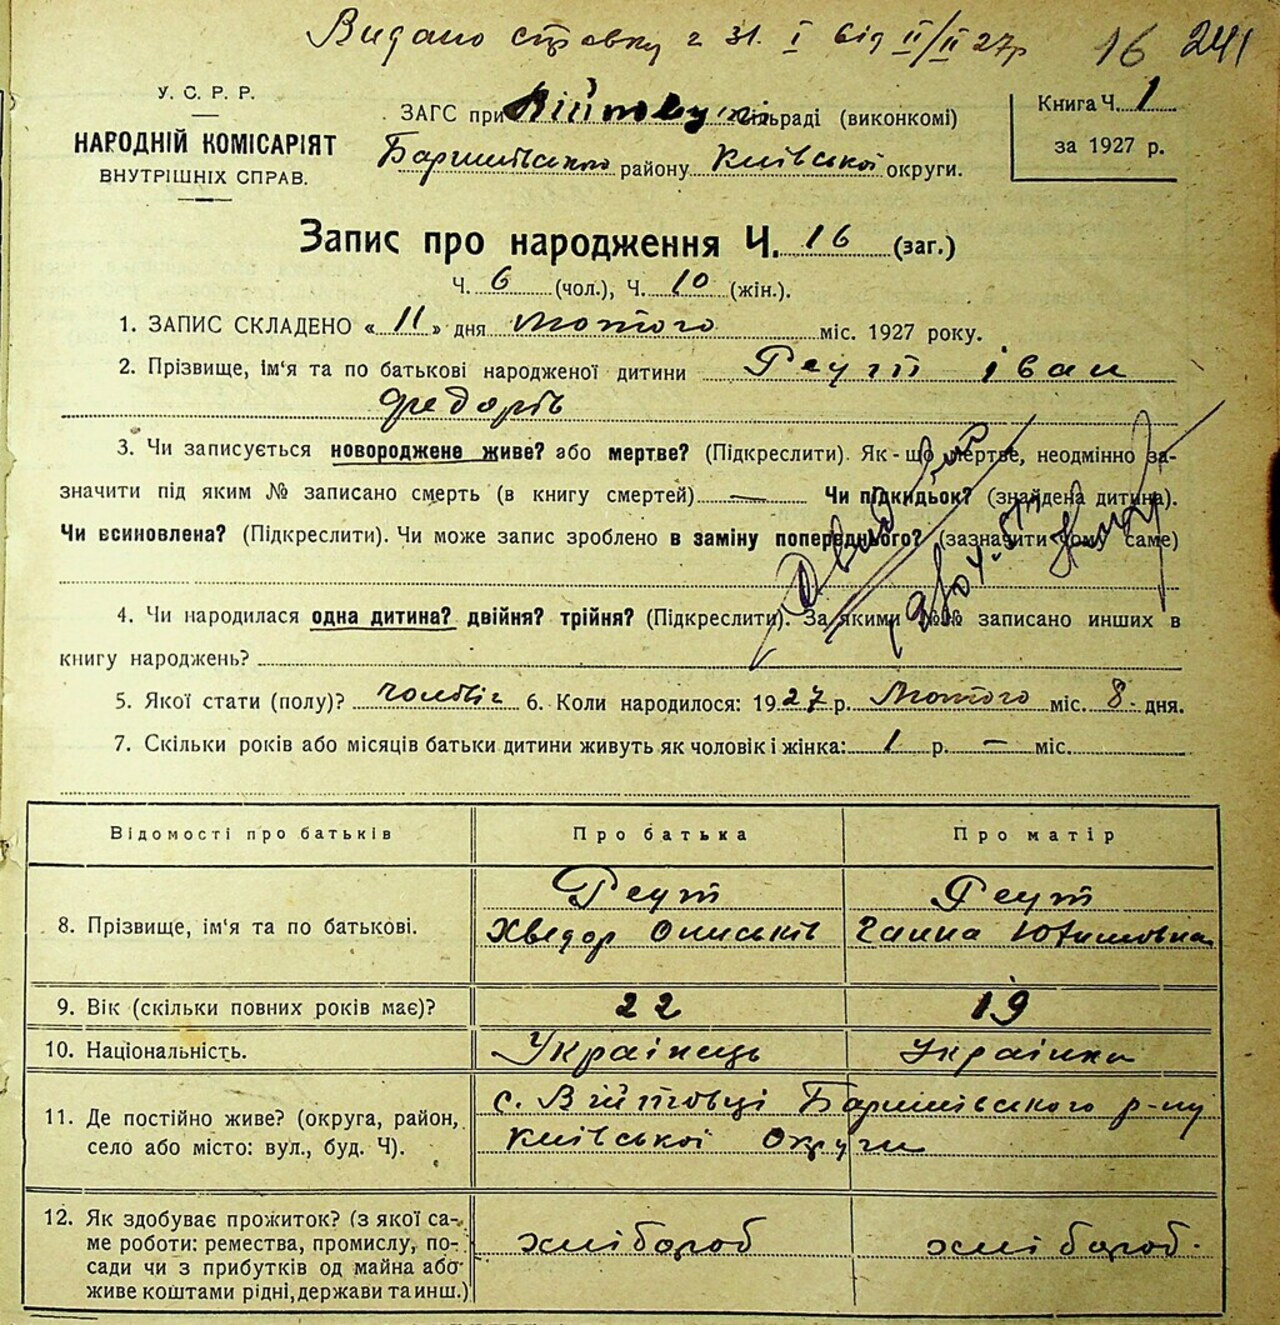 Видано справку ч 31. I від II/II 27р 16 241
У. С. Р. Р.
НАРОДНІЙ КОМІСАРІЯТ
ВНУТРІШНІХ СПРАВ.
ЗАГС при сільраді (виконкомі)
Баришівського району Київської округи.
Книга Ч. 1
за 1927 р.
Запис про народження Ч. 16 (заг.)
Ч. 6 (чол.), Ч. 10 (жін.).
1. ЗАПИС СКЛАДЕНО « 11 » дня Лютого міс. 1927 року.
2. Прізвище, ім'я та по батькові народженої дитини Реут Іван
Федорів
3. Чи записується новороджене живе? або мертве? (Підкреслити). Як-що мертве, неодмінно за-
значити під яким № записано смерть (в книгу смертей) — Чи підкидьок? (знайдена дитина).
Чи всиновлена? (Підкреслити). Чи може запис зроблено в заміну попереднього? (зазначити чому саме)
4. Чи народилася одна дитина? двійня? трійня? (Підкреслити). За якими №№ записано инших в
книгу народжень?
5. Якої стати (полу)? чоловіч 6. Коли народилося: 1927 р. Лютого міс. 8 дня.
7. Скільки років або місяців батьки дитини живуть як чоловік і жінка: 1 р. — міс.
Відомості про батьків Про батька Про матір
8. Прізвище, ім'я та по батькові.
Реут Реут
Хведор Ониськів Ганна Юхимовна
9. Вік (скільки повних років має)? 22 19
10. Національність. Українець Українка
11. Де постійно живе? (округа, район,
село або місто: вул., буд. Ч).
с. Війтовці Баришівського р-ну
Київської Округи
12. Як здобуває прожиток? (з якої са-
ме роботи: ремества, промислу, по-
сади чи з прибутків од майна або
живе коштами рідні, держави та инш.)
хлібороб хлібороб.